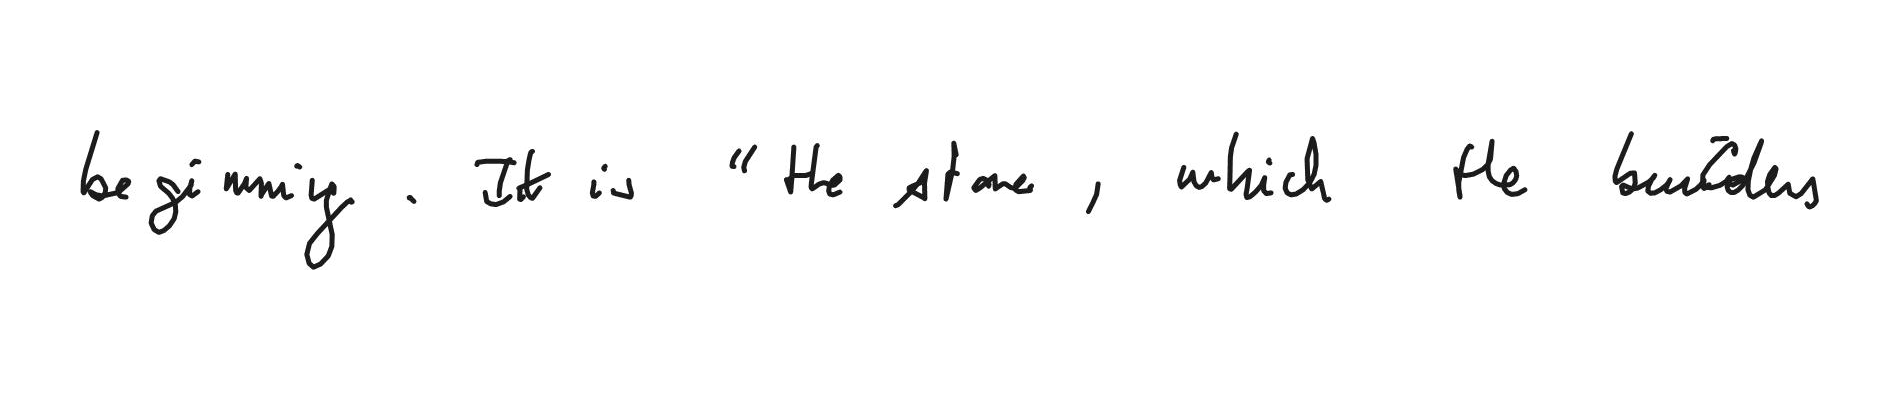 beginning. It is "the stone, which the builders